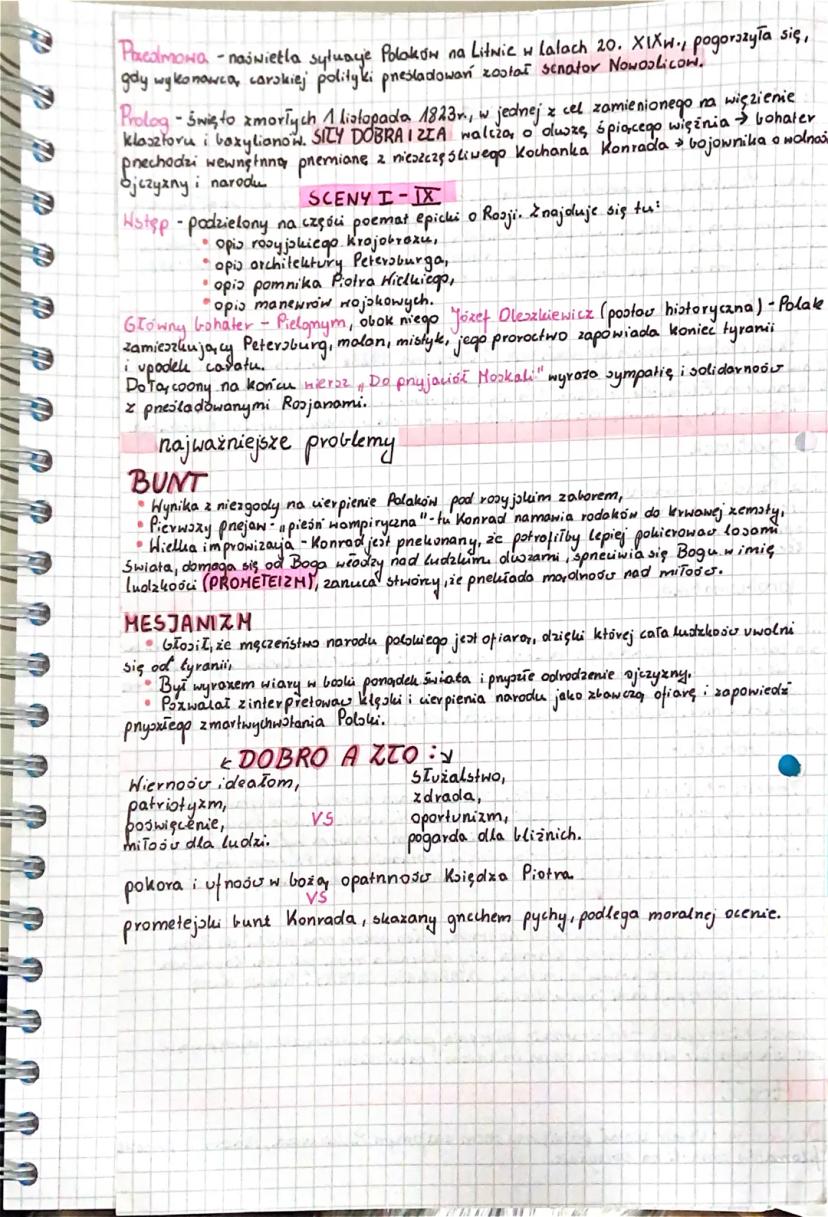 Przedmowa - naświetla sytuację Polaków na Litwie w latach 20. XIXw., pogorszyła się,
gdy wykonawcą carskiej polityki prześladowań został senator Nowosilcow.
Prolog - święto zmarłych 1 listopada 1823r., w jednej z cel zamienionego na więzienie
klasztoru i bazylianów. SIŁY DOBRA I ZŁA walczą o duszę śpiącego więźnia → bohater
przechodzi wewnętrzną przemianę z nieszczęśliwego kochanka Konrada → bojownika o wolność
ojczyzny i narodu
SCENY I - IX
Wstęp - podzielony na części poemat epicki o Rosji. Znajduje się tu:
• opis rosyjskiego krajobrazu,
• opis architektury Petersburga,
• opis pomnika Piotra Wielkiego,
• opis manewrów wojskowych.
Główny bohater - Pielgrzym, obok niego Józef Oleszkiewicz (postać historyczna) - Polak
zamieszkujący Petersburg, malarz, mistyk, jego proroctwo zapowiada koniec tyranii
i upadek caratu.
Dołączony na końcu wiersz „Do przyjaciół Moskali" wyraża sympatię i solidarność
z prześladowanymi Rosjanami.
najważniejsze problemy
BUNT
• Wynika z niezgody na cierpienie Polaków pod rosyjskim zaborem,
• Pierwszy przejaw - „pieśń wampiryczna" - tu Konrad namawia rodaków do krwawej zemsty,
• Wielka improwizacja - Konrad jest przekonany, że potrafiłby lepiej pokierować losami
świata, domaga się od Boga władzy nad ludzkimi duszami, sprzeciwia się Bogu w imię
ludzkości (PROMETEIZM), zarzuca stwórcy, że przekłada mądrość nad miłość.
MESJANIZM
• Głosił, że męczeństwo narodu polskiego jest ofiarą, dzięki której cała ludzkość uwolni
się od tyranii,
• Był wyrazem wiary w boski porządek świata i przyszłe odrodzenie ojczyzny.
• Pozwalał zinterpretować klęski i cierpienia narodu jako zbawczą ofiarę i zapowiedź
przyszłego zmartwychwstania Polski.
↙ DOBRO A ZŁO : ↘
Wierność ideałom, służalstwo,
patriotyzm, zdrada,
poświęcenie, VS oportunizm,
miłość dla ludzi. pogarda dla bliźnich.
pokora i ufność w bożą opatrzność Księdza Piotra
VS
prometejski bunt Konrada, skazany grzechem pychy, podlega moralnej ocenie.